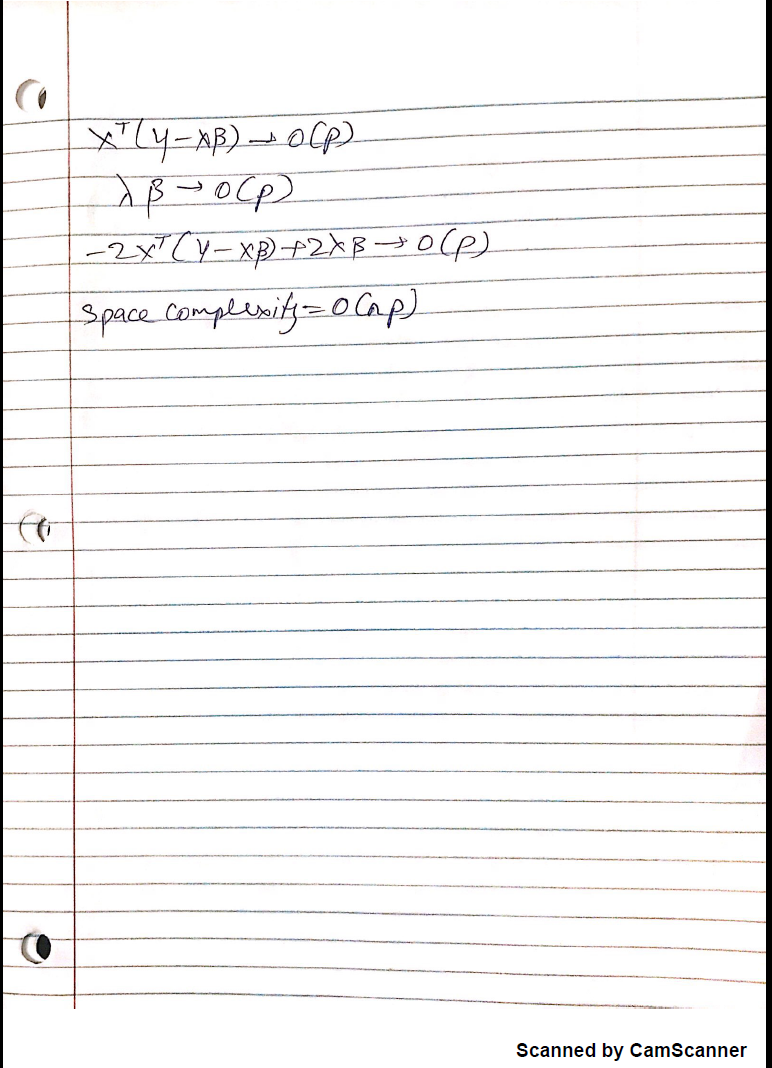 X^T(Y-XB) → O(p)
λB → O(p)
-2X^T(Y-XB)+2λB → O(p)
Space complexity = O(np)
Scanned by CamScanner